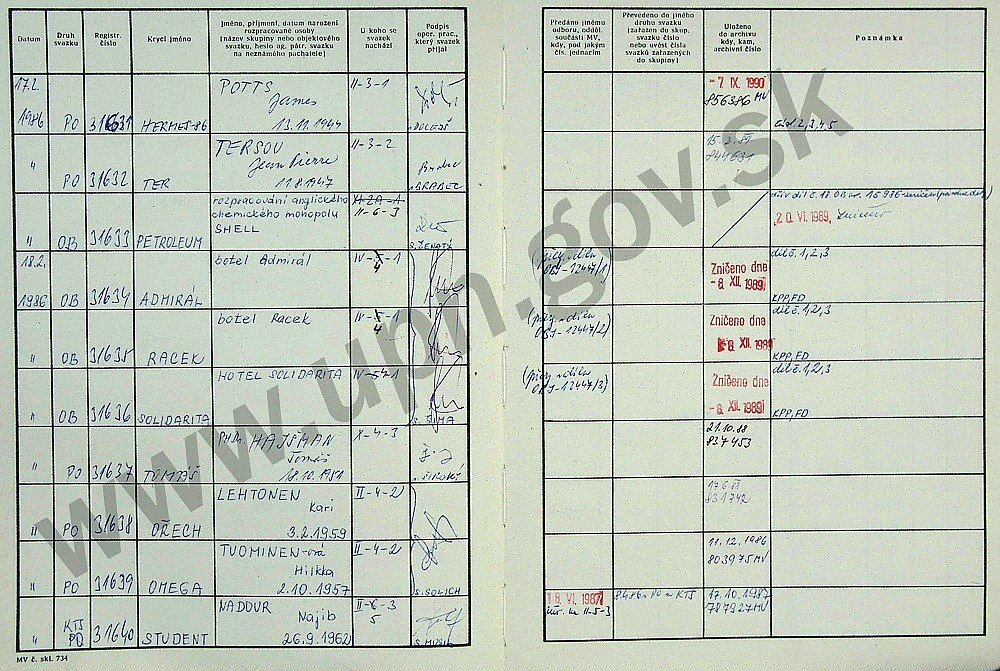 Datum
Druh
svazku
Registr.
číslo
Krycí jméno
Jméno, příjmení, datum narození
rozpracované osoby
(název skupiny nebo objektového
svazku, heslo ag. pátr. svazku
na neznámého pachatele)
U koho se
svazek
nachází
Podpis
oper. prac.,
který svazek
přijal
Předáno jinému
odboru, odděl.
součásti MV,
kdy, pod jakým
čís. jednacím
Převedeno do jiného
druhu svazku
(zařazen do skup.
svazku číslo
nebo uvést čísla
svazků zařazených
do skupiny)
Uloženo
do archivu
kdy, kam,
archivní číslo
Poznámka
17.2.
1986 PO 31631 HERMES-86
POTTS
James
13.11.1944
II-3-1
DOLEJŠ
- 7. IX. 1990
856386 MV
část 2,3,4,5
" PO 31632 TER
TERSOU
Jean Pierre
11.8.1947
II-3-2
BRABEC
844631
" OB 31633 PETROLEUM
rozpracování anglického
chemického monopolu
SHELL
II-6-3
S. ŽENATÝ
2 0. VI. 1989
18.2.
1986 OB 31634 ADMIRÁL
botel Admirál
IV-5-1
4
OBJ-12447/1)
Zničeno dne
- 8. XII. 1989
díl č. 1,2,3
KPP, FD
" OB 31635 RACEK
botel Racek
IV-5-1
4
OBJ-12447/2)
Zničeno dne
8. XII. 1989
díl č. 1,2,3
KPP, FD
" OB 31636 SOLIDARITA
HOTEL SOLIDARITA
IV-5-1
S. ŠÍMA
OBJ-12447/3)
Zničeno dne
- 8. XII. 1989
díl č. 1,2,3
KPP, FD
" PO 31637 TOMÁŠ
HAJŠMAN
Tomáš
18.10.1951
X-4-3
ŠIROKÝ
21.10.88
834453
" PO 31638 OŘECH
LEHTONEN
Kari
3.2.1959
II-4-2
831742
" PO 31639 OMEGA
TUOMINEN-ová
Hilkka
2.10.1957
II-4-2
S. SOLICH
11.12.1986
803975 MV
" KTS
PO 31640 STUDENT
NADDUR
Najib
26.9.1962
II-6-3
5
S. MUSIL
1 8. VI. 1987
II-5-3
17.10.1987
787927 MV
MV č. skl. 734
www.upn.gov.sk